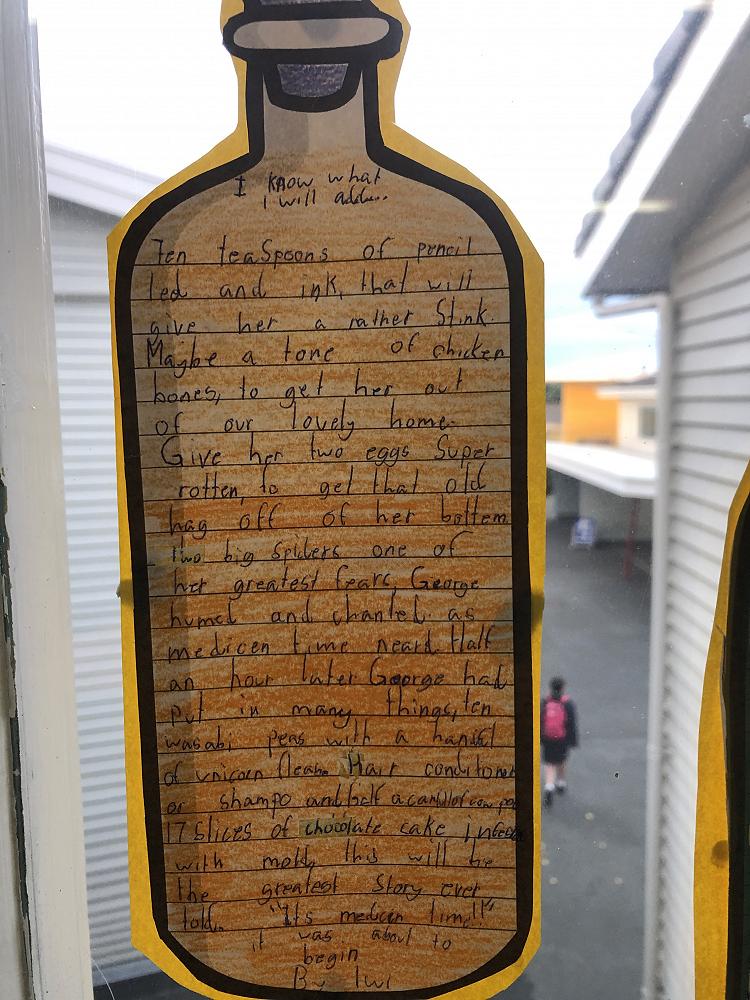 I know what
I will add...
Ten teaspoons of pencil
led and ink, that will
give her a rather Stink.
Maybe a tone of chicken
bones, to get her out
of our lovely home.
Give her two eggs Super
rotten, to get that old
hag off of her bottem.
Two big Spiders one of
her greatest fears, George
humed and chanted as
medicen time neard. Half
an hour later George had
put in many things, ten
wasabi peas with a handful
of unicorn Hair conditoner
or shampo and half a of cow
17 Slices of chocolate cake
with this will be
the greatest Story ever
told. "It's medicen time!!"
it was about to
begin
By